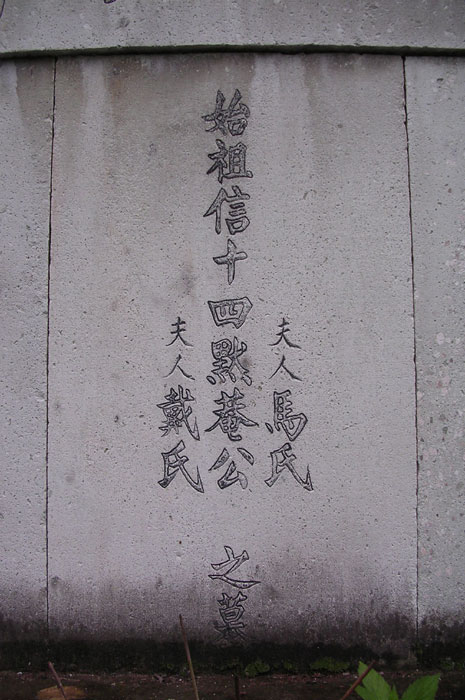 夫人馬氏
始祖信十四默菴公之墓
夫人戴氏